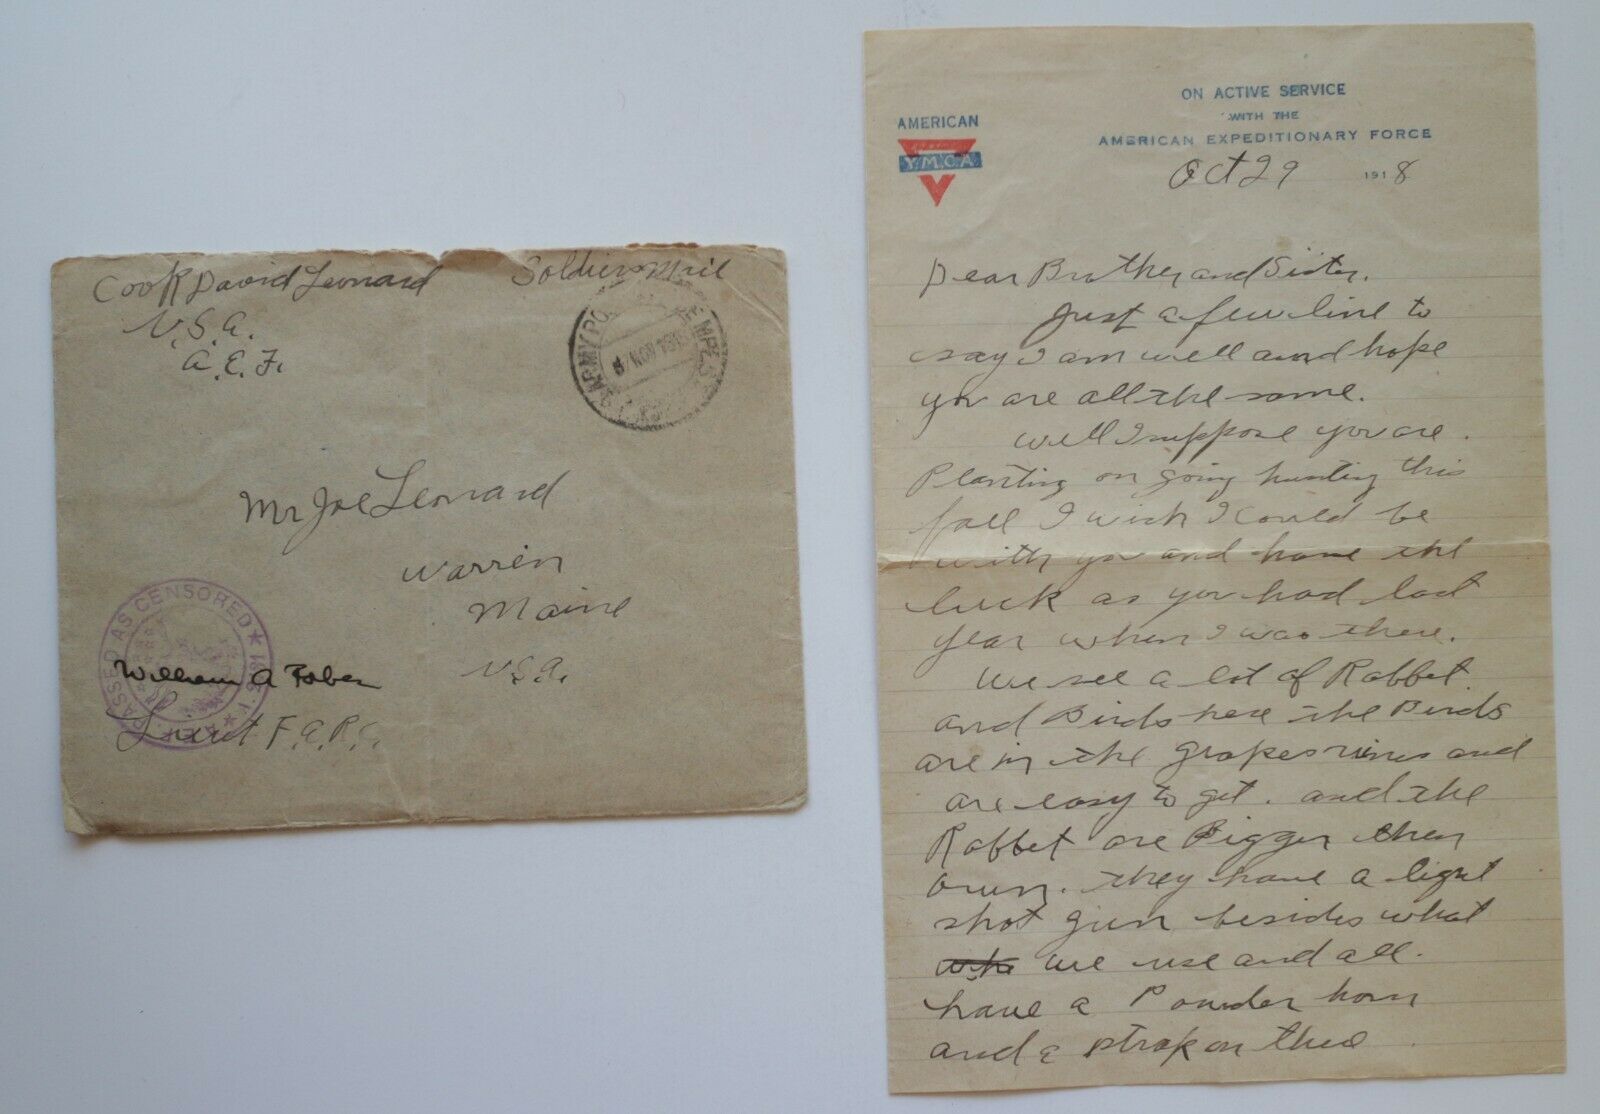 Cook David Leonard
U.S.A.
A.E.F.
Soldiers Mail
ARMY PO
NOV 191
Mr Joe Leonard
Warren
Maine
U.S.A.
PASSED AS CENSORED
A.E.F.
William A
Lieut F.A.R.C.
AMERICAN
Y.M.C.A.
ON ACTIVE SERVICE
WITH THE
AMERICAN EXPEDITIONARY FORCE
Oct 29 1918
Dear Brother and Sister.
Just a few line to
say I am well and hope
you are all the same.
Well I suppose you are
Planting on going hunting this
fall I wish I could be
with you and have the
luck as you had last
year when I was there.
We see a lot of Rabbet
and Birds here the Birds
are in the grapes vines and
are easy to get. and the
Rabbet are Bigger then
ourn. they have a light
shot gun besides what
we use and all.
have a Powder horn
and a strap on